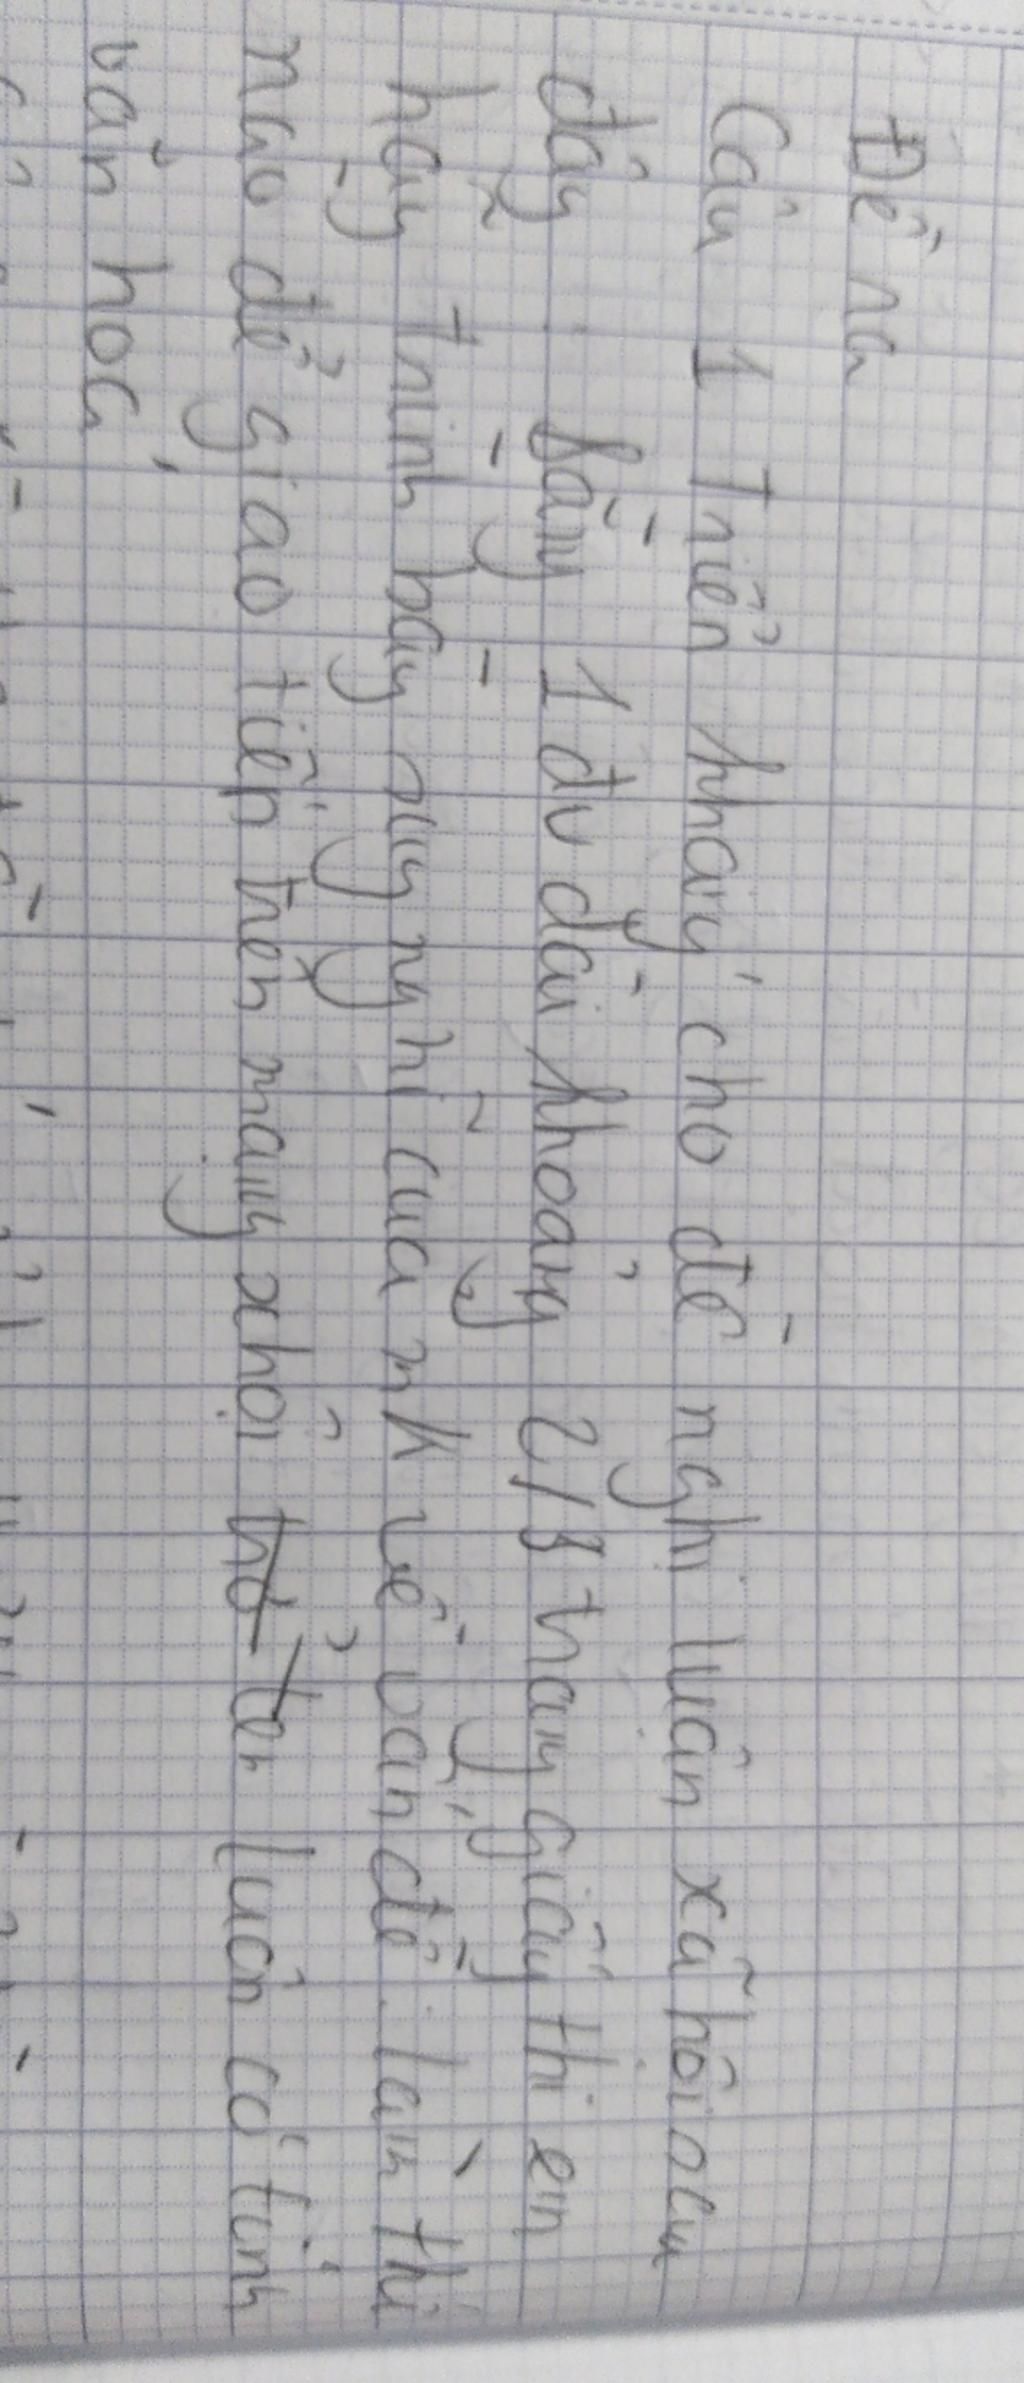 Đề ra
Câu 1 Triển khai cho đề nghị luận xã hội sau
đây: bằng 1 đv dài khoảng 2/3 trang giấy thi em
hãy trình bày suy nghĩ của mh về vấn đề: làm thế
nào để giao tiếp trên mạng xh hội trở tên luôn có tính
văn hoá